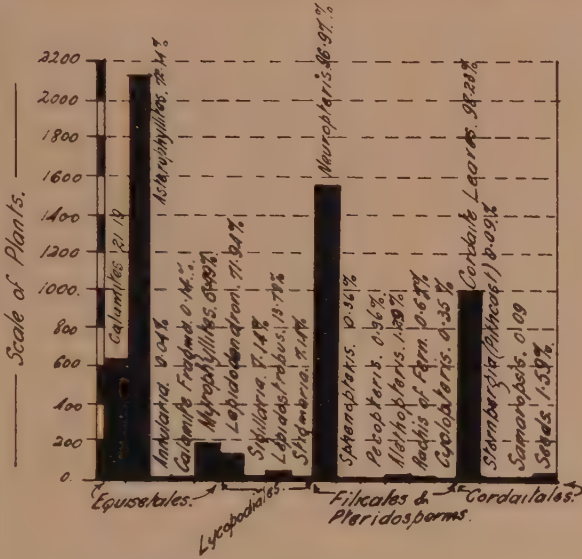 Scale of Plants.
2200
2000
1800
1600
1400
1200
1000
800
600
400
200
0
Calamites 21.19
Asterophyllites.
Annularia. 0.04%
Calamite Fragmd. 0.14%
Myrophyllites.
Lepidodendron. 71.94%
Sigillaria. 7.14%
Lepidostrobus. 13.78%
Stigmaria. 7.14%
Neuropteris. 96.97%
Sphenopteris. 0.36%
Pecopteris. 0.36%
Alethopteris.
Rachis of Fern.
Cyclopteris. 0.35%
Cordaite Leaves. 98.23%
Sternbergia 0.09%
Samaropsis. 0.09
Seeds. 1.59%
Equisetales.
Lycopodiales.
Filicales &
Pteridosperms.
Cordaitales.